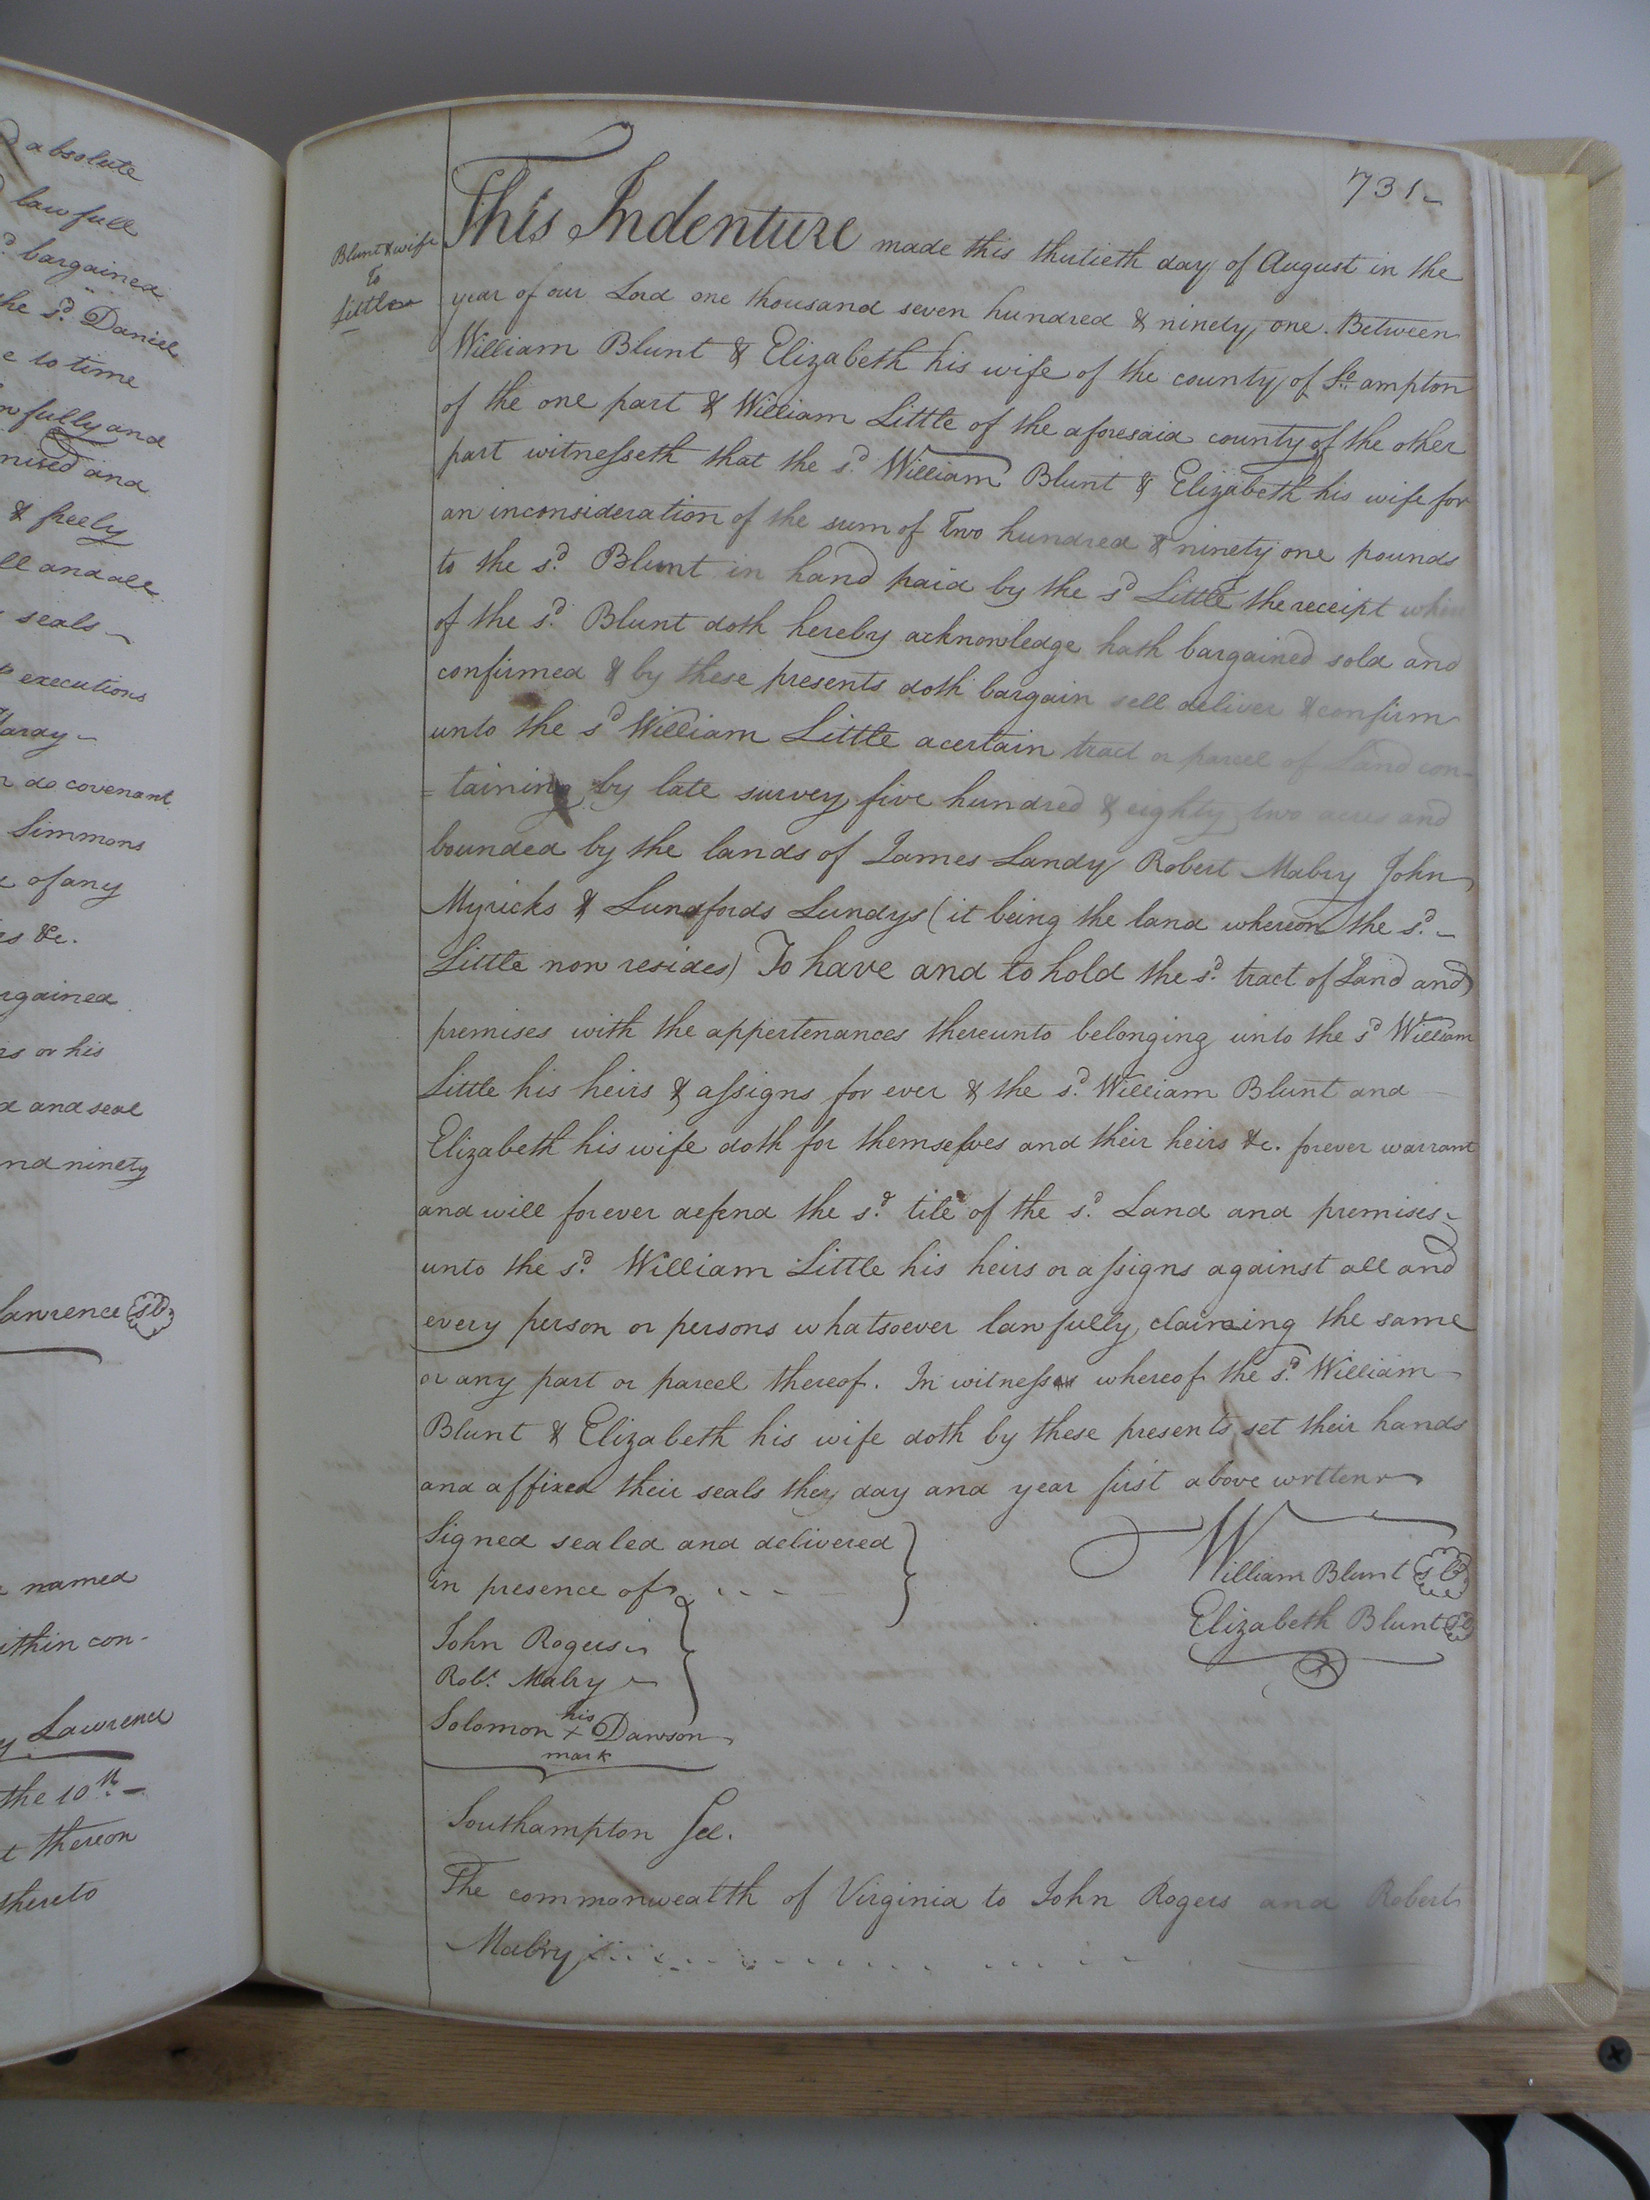 absolute
lawfull
bargained
the sd. Daniel
e to time
fully and
mised and
& freely
ll and all
seals
executions
do covenant
Simmons
of any
&c.
rgained
rs or his
d and seal
nd ninety
Lawrence
named
ithin con-
Lawrence
the 10th
thereon
thereto
731
Blunt & wife
To
Little
This Indenture made this thirtieth day of August in the
year of our Lord one thousand seven hundred & ninety one. Between
William Blunt & Elizabeth his wife of the county of So.ampton
of the one part & William Little of the aforesaid county of the other
part witnesseth that the sd. William Blunt & Elizabeth his wife for
an inconsideration of the sum of Two hundred & ninety one pounds
to the sd. Blunt in hand paid by the sd Little the receipt where
of the sd. Blunt doth hereby acknowledge hath bargained sold and
confirmed & by these presents doth bargain sell deliver & confirm
unto the sd William Little a certain tract or parcel of Land con-
=taining by late survey five hundred & eighty two acres and
bounded by the lands of James Landy Robert Mabry John
Myricks & Lundfords Lundys (it being the land whereon the sd.
Little now resides) To have and to hold the sd. tract of Land and
premises with the appertenances thereunto belonging unto the sd William
Little his heirs & assigns for ever & the sd. William Blunt and
Elizabeth his wife doth for themselves and their heirs &c. forever warrant
and will forever defend the sd. title of the sd. Land and premises
unto the sd. William Little his heirs or assigns against all and
every person or persons whatsoever lawfully claiming the same
or any part or parcel thereof. In witness whereof the sd. William
Blunt & Elizabeth his wife doth by these presents set their hands
and affixed their seals they day and year first above wrtten
Signed sealed and delivered
in presence of
William Blunt
Elizabeth Blunt
John Rogers
Robt. Mabry
Solomon his x mark Dawson
Southampton Sct.
The commonwealth of Virginia to John Rogers and Robert
Mabry